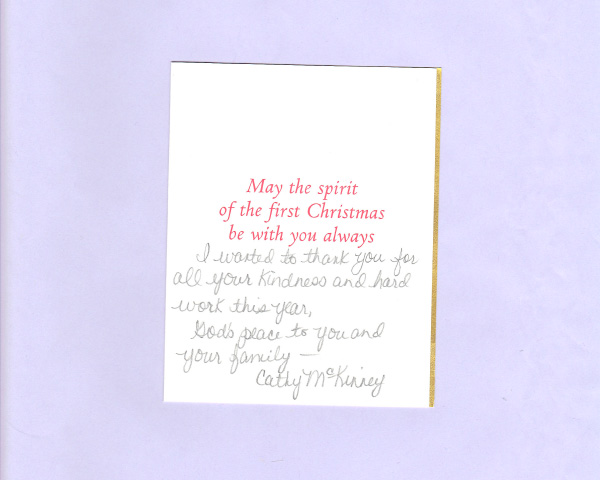 May the spirit
of the first Christmas
be with you always
I wanted to thank you for
all your kindness and hard
work this year,
God's peace to you and
your family —
Cathy McKinney